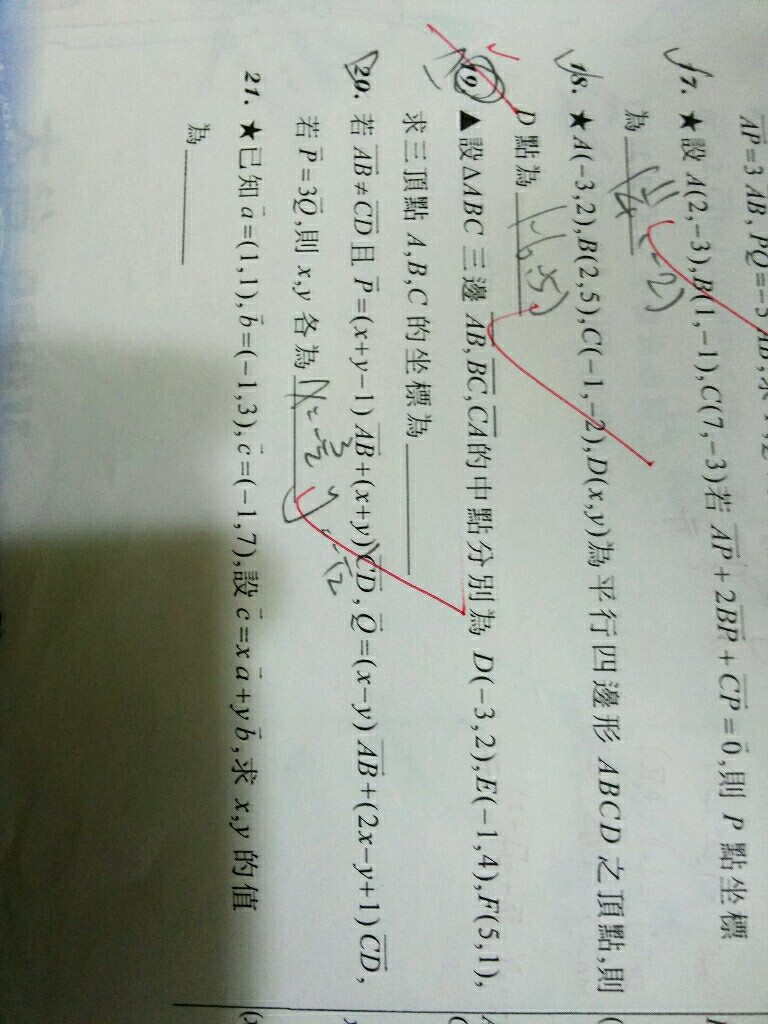 AP=3 AB, PQ=-5 AB,
17. ★設 A(2,-3),B(1,-1),C(7,-3)若 AP+2BP+CP=0,則 P 點坐標
為 (11/4,-2)
18. ★A(-3,2),B(2,5),C(-1,-2),D(x,y)為平行四邊形 ABCD 之頂點,則
D 點為
19 ▲設ΔABC 三邊 AB,BC,CA的中點分別為 D(-3,2),E(-1,4),F(5,1),
求三頂點 A,B,C 的坐標為
20. 若 AB≠CD且 P=(x+y-1) AB+(x+y)CD, Q=(x-y) AB+(2x-y+1) CD,
若 P=3Q,則 x,y 各為
21. ★已知 a=(1,1), b=(-1,3), c=(-1,7),設 c=x a+y b,求 x,y 的值
為